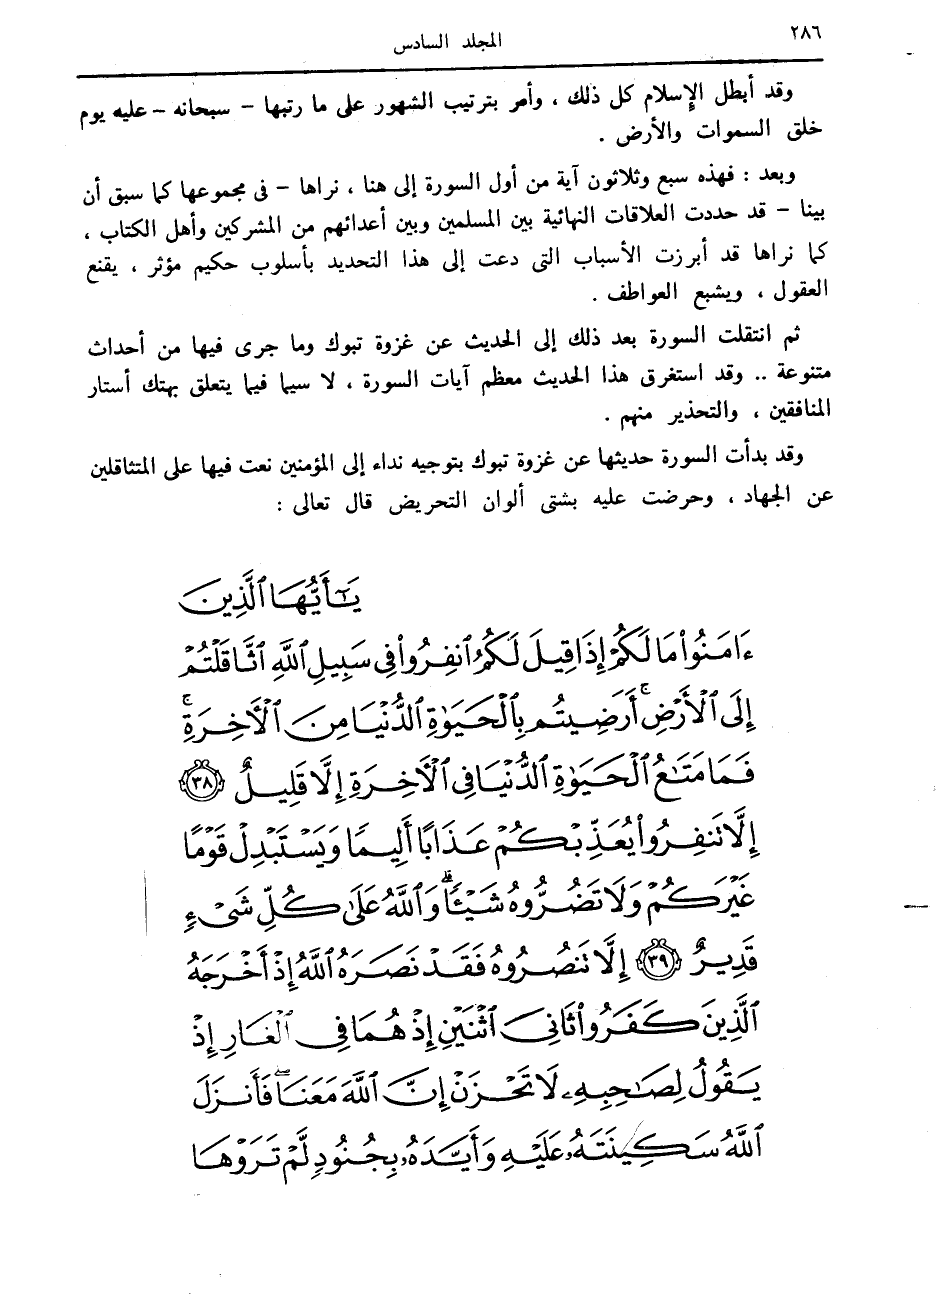 ٢٨٦
المجلد السادس
وقد أبطل الإسلام كل ذلك ، وأمر بترتيب الشهور على ما رتبها – سبحانه – عليه يوم
خلق السموات والأرض .
وبعد : فهذه سبع وثلاثون آية من أول السورة إلى هنا ، نراها – فى مجموعها كما سبق أن
بينا – قد حددت العلاقات النهائية بين المسلمين وبين أعدائهم من المشركين وأهل الكتاب ،
كما نراها قد أبرزت الأسباب التى دعت إلى هذا التحديد بأسلوب حكيم مؤثر ، يقنع
العقول ، ويشبع العواطف .
ثم انتقلت السورة بعد ذلك إلى الحديث عن غزوة تبوك وما جرى فيها من أحداث
متنوعة .. وقد استغرق هذا الحديث معظم آيات السورة ، لا سيما فيما يتعلق بهتك أستار
المنافقين ، والتحذير منهم .
وقد بدأت السورة حديثها عن غزوة تبوك بتوجيه نداء إلى المؤمنين نعت فيها على المتثاقلين
عن الجهاد ، وحرضت عليه بشتى ألوان التحريض قال تعالى :
يَـٰٓأَيُّهَا ٱلَّذِينَ
ءَامَنُوا۟ مَا لَكُمْ إِذَا قِيلَ لَكُمُ ٱنفِرُوا۟ فِى سَبِيلِ ٱللَّهِ ٱثَّاقَلْتُمْ
إِلَى ٱلْأَرْضِ ۚ أَرَضِيتُم بِٱلْحَيَوٰةِ ٱلدُّنْيَا مِنَ ٱلْـَٔاخِرَةِ ۚ
فَمَا مَتَـٰعُ ٱلْحَيَوٰةِ ٱلدُّنْيَا فِى ٱلْـَٔاخِرَةِ إِلَّا قَلِيلٌ ٣٨
إِلَّا تَنفِرُوا۟ يُعَذِّبْكُمْ عَذَابًا أَلِيمًا وَيَسْتَبْدِلْ قَوْمًا
غَيْرَكُمْ وَلَا تَضُرُّوهُ شَيْـًٔا ۗ وَٱللَّهُ عَلَىٰ كُلِّ شَىْءٍ
قَدِيرٌ ٣٩ إِلَّا تَنصُرُوهُ فَقَدْ نَصَرَهُ ٱللَّهُ إِذْ أَخْرَجَهُ
ٱلَّذِينَ كَفَرُوا۟ ثَانِىَ ٱثْنَيْنِ إِذْ هُمَا فِى ٱلْغَارِ إِذْ
يَقُولُ لِصَـٰحِبِهِۦ لَا تَحْزَنْ إِنَّ ٱللَّهَ مَعَنَا ۖ فَأَنزَلَ
ٱللَّهُ سَكِينَتَهُۥ عَلَيْهِ وَأَيَّدَهُۥ بِجُنُودٍ لَّمْ تَرَوْهَا